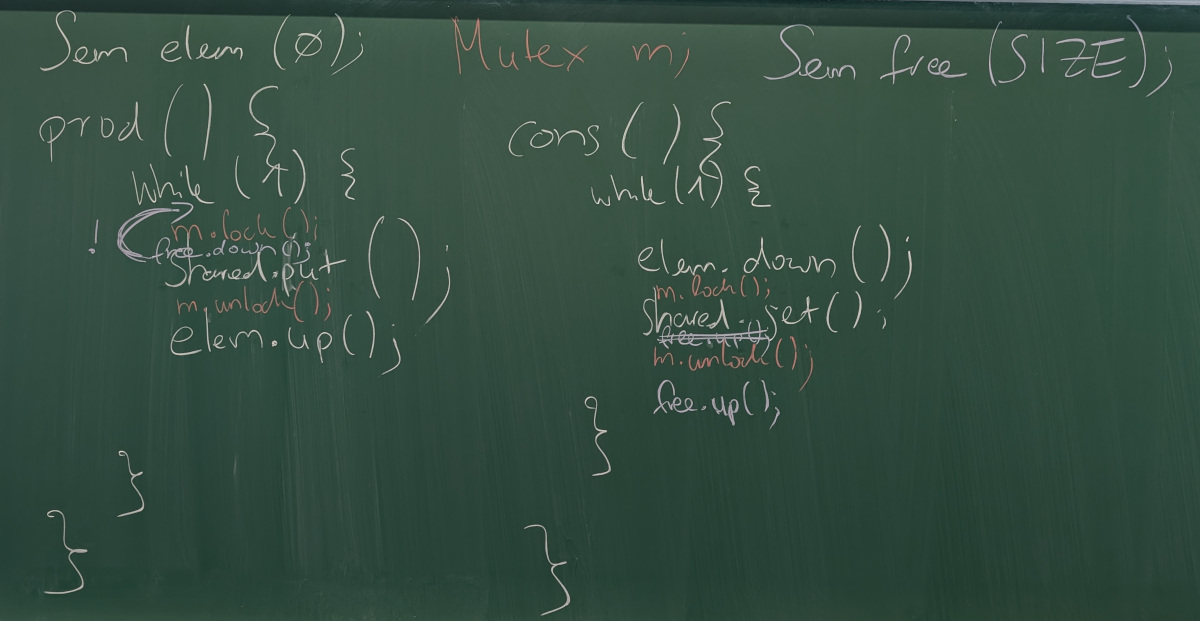 Sem elem (Ø); Mutex m; Sem free (SIZE);
prod () {
while (1) {
! m.lock();
free.down();
shared.put ();
m.unlock();
elem.up();
}
}
cons () {
while (1) {
elem.down();
m.lock();
shared.get();
free.up();
m.unlock();
free.up();
}
}